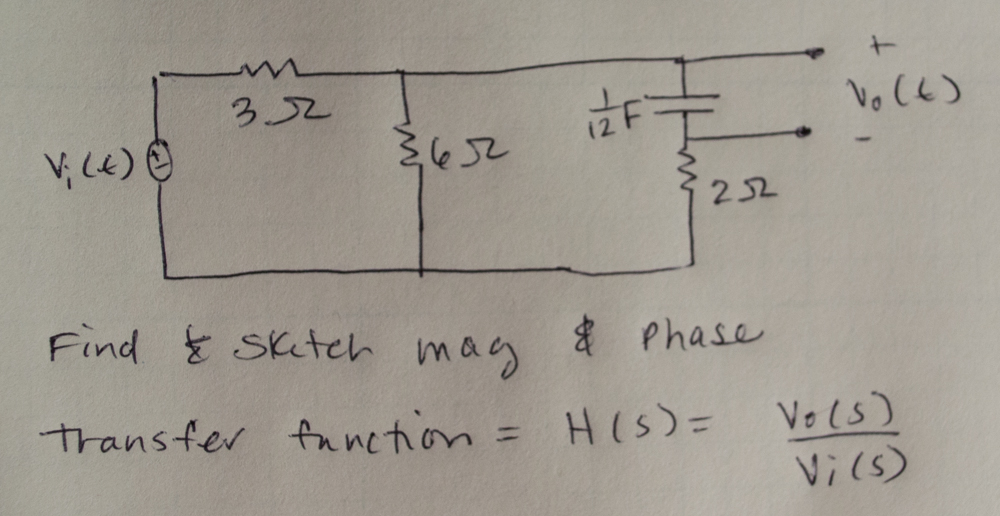 +
3Ω
1/12 F
Vo(t)
Vi(t)
6Ω
-
2Ω
Find & sketch mag & phase
transfer function = H(s) = Vo(s)/Vi(s)